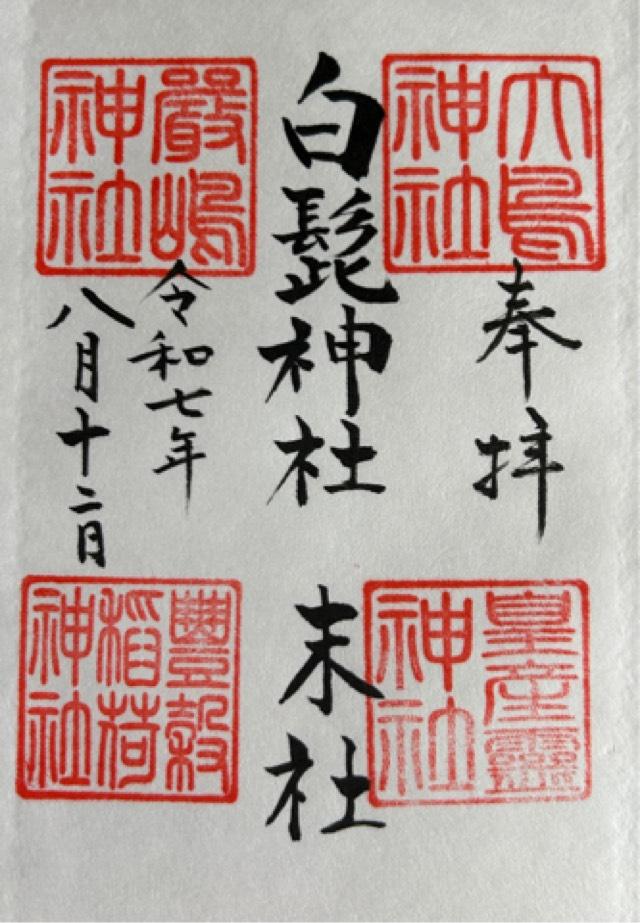 大鳥
神社
奉拝
皇産靈
神社
白髭神社
末社
嚴嶋
神社
令和七年
八月十二日
豐穀
稲荷
神社